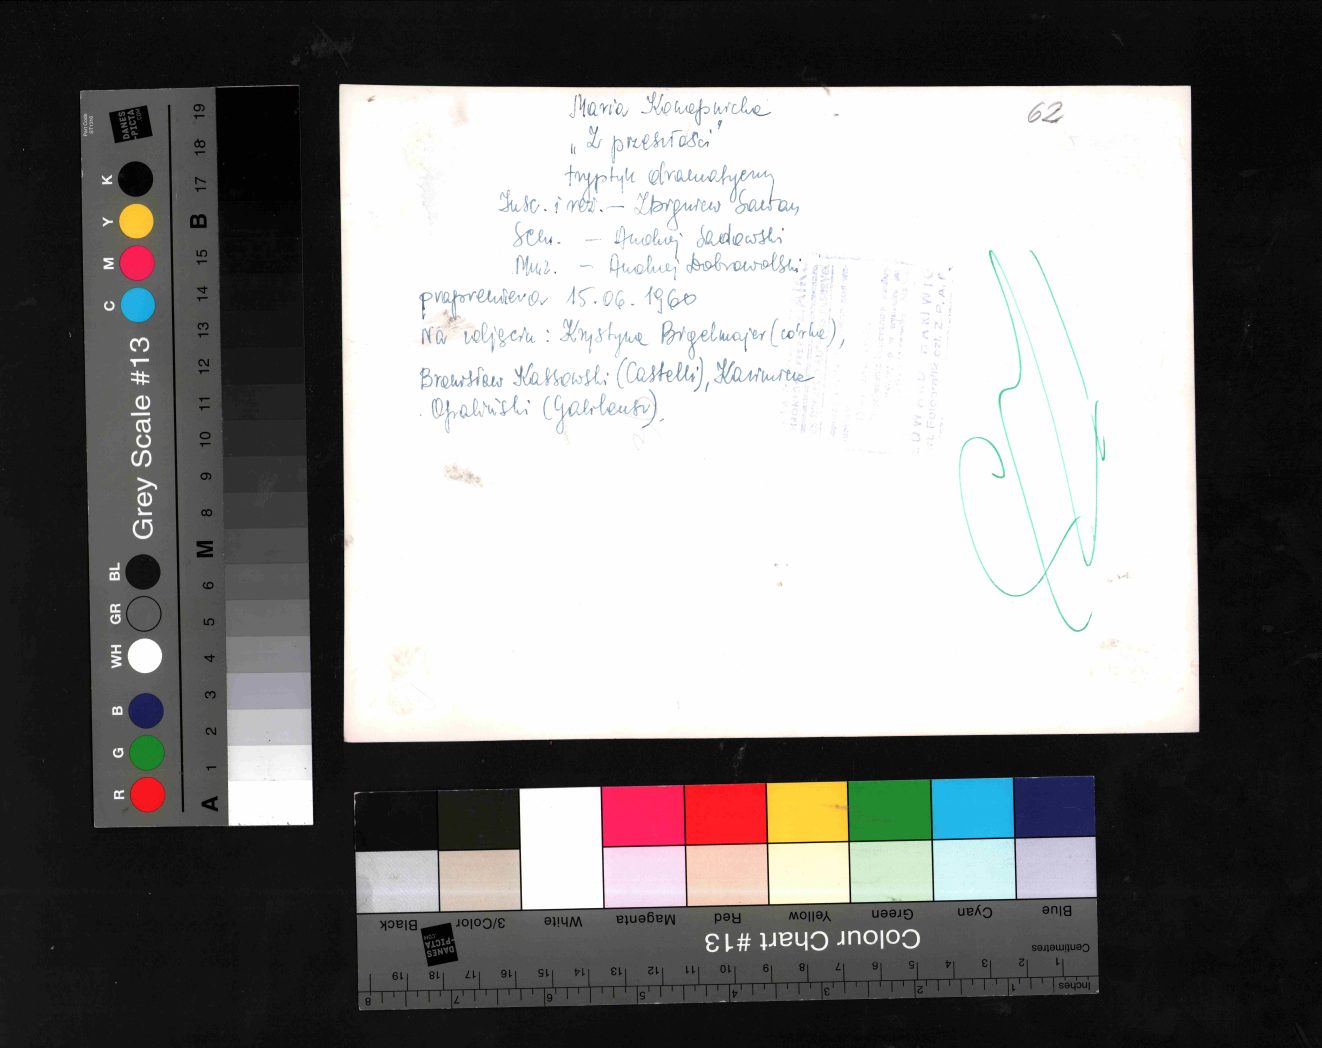 Maria Konopnicka
„Z przeszłości”
tryptyk dramatyczny
Insc. i reż. — Zbigniew Sawan
Scen. — Andrzej Sadowski
Muz. — Andrzej Dobrowolski
prapremiera 15.06.1960
Na zdjęciu: Krystyna Brigelmajer (córka),
Bronisław Kassowski (Castelli), Kazimierz
Opaliński (Galileusz).
62
Part Code
ST1350
DANES
-PICTA
.COM
Grey Scale #13
R G B WH GR BL C M Y K
A 1 2 3 4 5 6 M 8 9 10 11 12 13 14 15 B 17 18 19
Black 3/Color White Magenta Red Yellow Green Cyan Blue
Colour Chart #13
DANES
-PICTA
.COM
Centimetres
1 2 3 4 5 6 7 8 9 10 11 12 13 14 15 16 17 18 19
Inches
1 2 3 4 5 6 7 8